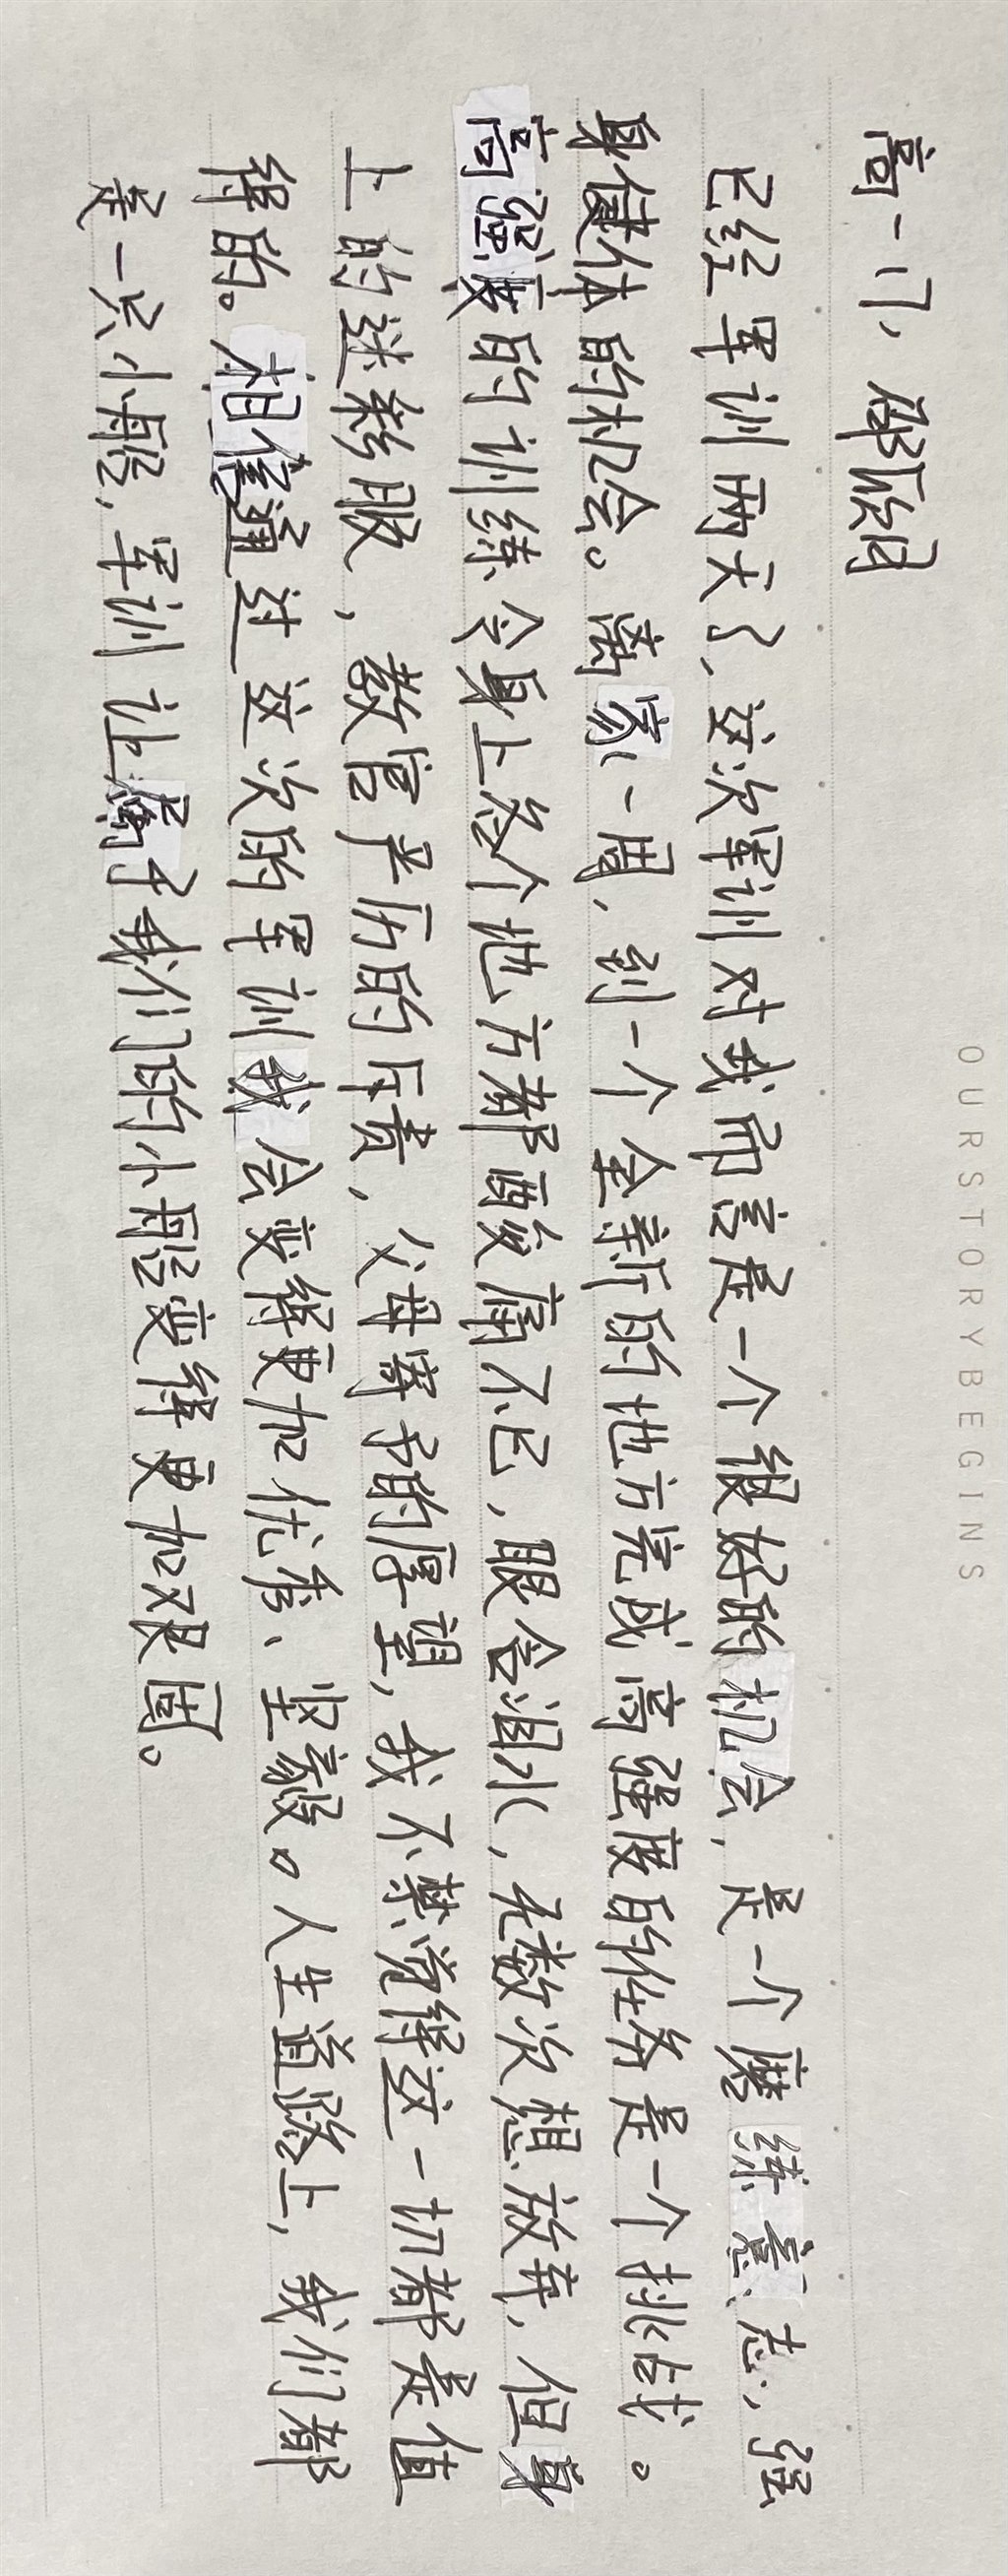 OUR STORY BEGINS
高一17, 邵欣月
已经军训两天了、这次军训对我而言是一个很好的机会, 是一个磨练意志, 强
身健体的机会。离家一周, 到一个全新的地方完成高强度的任务是一个挑战。
高强度的训练令身上各个地方都酸痛不已, 眼含泪水, 无数次想放弃, 但身
上的迷彩服, 教官严历的斥责, 父母寄予的厚望, 我不禁觉得这一切都是值
得的。相信通过这次的军训我会变得更加优秀、坚毅。人生道路上, 我们都
是一只小船, 军训让属于我们的小船变得更加艰固。